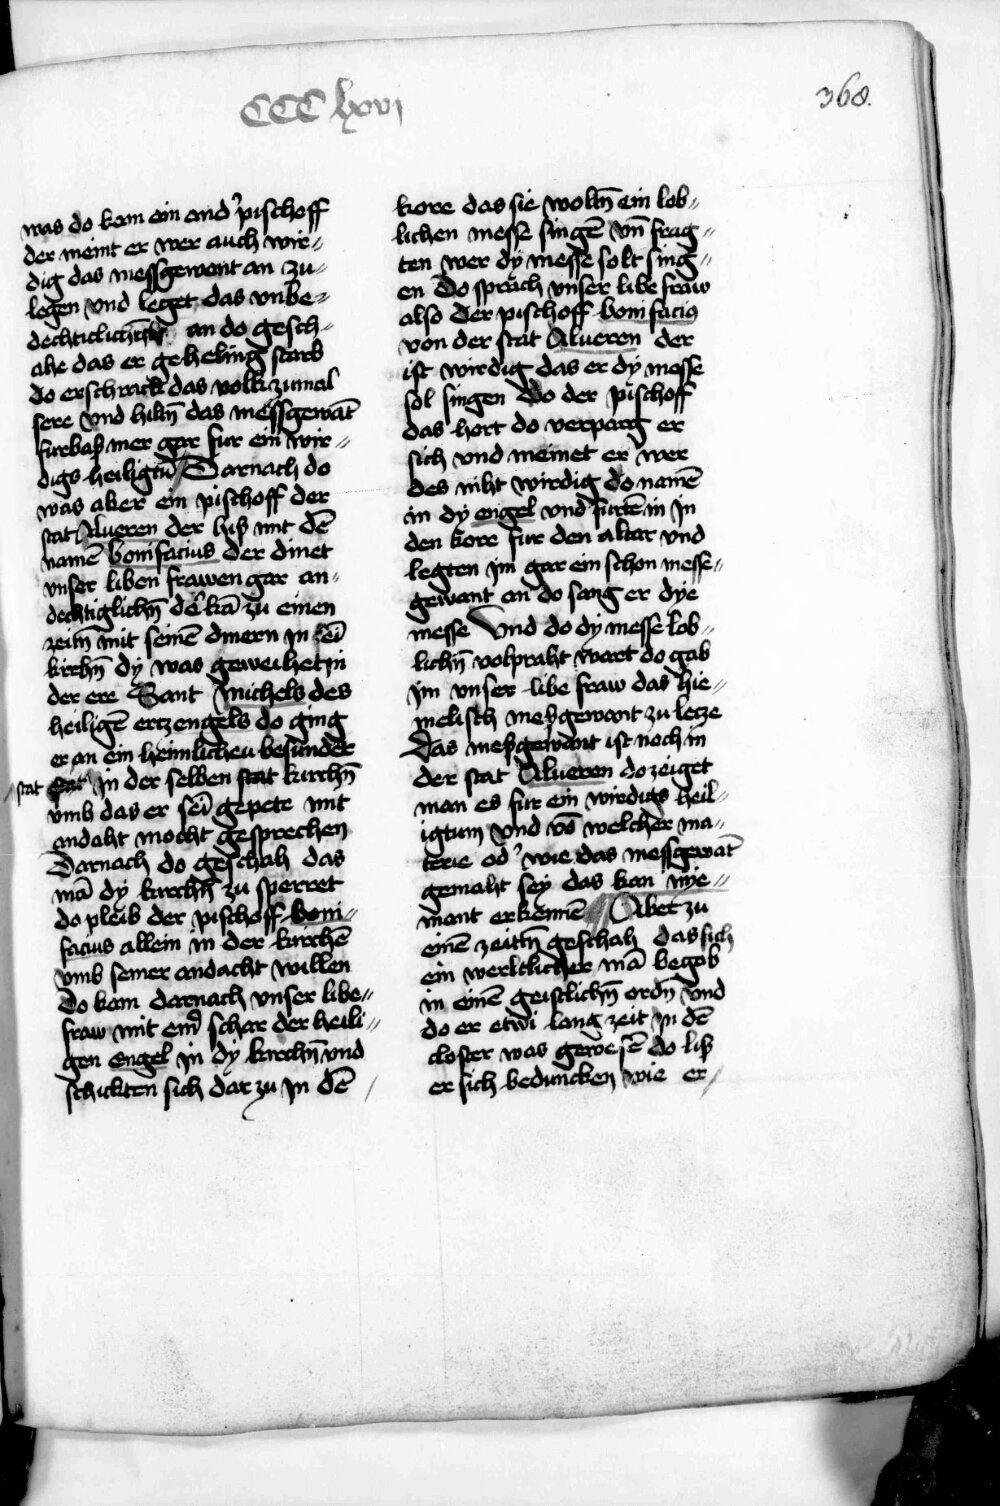 CCC lxvj
368.
was do kam ein and' pischoff
der meint er wer auch wir〃
dig das messgewant an zu〃
legen vnd leget das vnbe〃
an do gesch〃
ahe das er geheling starb
do erschrack das volk zumal
sere vnd hiltn̄ das messgewāt
furbaß mer gar fur ein wir〃
digs heiligtū Darnach do
was aber ein pischoff der
stat Alueren der hiß mit dē
namē bonifacius der dinet
vnser liben frawen gar an〃
dechtiglichn̄ dē kā zu einen
zeitn̄ mit seinē dinern in sei
kirchn̄ dy was geweihet in
der ere Sant Michels des
heiligē ertzengels do ging
er an ein heimlicheu besunder
stat in der selben stat kirchn̄
vmb das er sei gepete mit
andaht mocht gesprechen
Darnach do geschah das
mā dy kirchn̄ zu sperret
do pleib der pischoff boni〃
facius allein in der kirchē
vmb seiner andacht willen
Do kam darnach vnser libe〃
fraw mit ein' schar der heili〃
gen Engel in dy kirchn̄ vnd
schickten sich dar zu in dē
kore das sie wolln̄ ein lob〃
lichen messe singē vn̄ frag〃
ten wer dy messe solt sing〃
en Do sprach vnser libe fraw
also der pischoff bonifacius
von der stat Alueren der
ist wirdig das er dy messe
sol singen Do der pischoff
das hort do verparg er
sich vnd meinet er wer
des niht wirdig do namē
in dy engel vnd furtē in in
den kore fur den altar vnd
legten im gar ein schon messe〃
gewant an do sang er dye
messe Vnd do dy messe lob〃
lichn̄ volpraht wart do gab
im vnser libe fraw das hie〃
melisch meßgewant zu letze
Das meßgewant ist noch in
der stat Alueren do zeiget
man es fur ein wirdigs heil〃
igtum vnd vō welcher ma〃
terie od' wie das messgewāt
gemaht sey das kan nye〃
mant erkennē Aber zu
einē zeitn̄ geschah das sich
ein werltlicher mā begob
in einē geistlichn̄ ordn̄ vnd
do er etwi lang zeit in dē
closter was gewesē do liß
er sich beduncken wie er